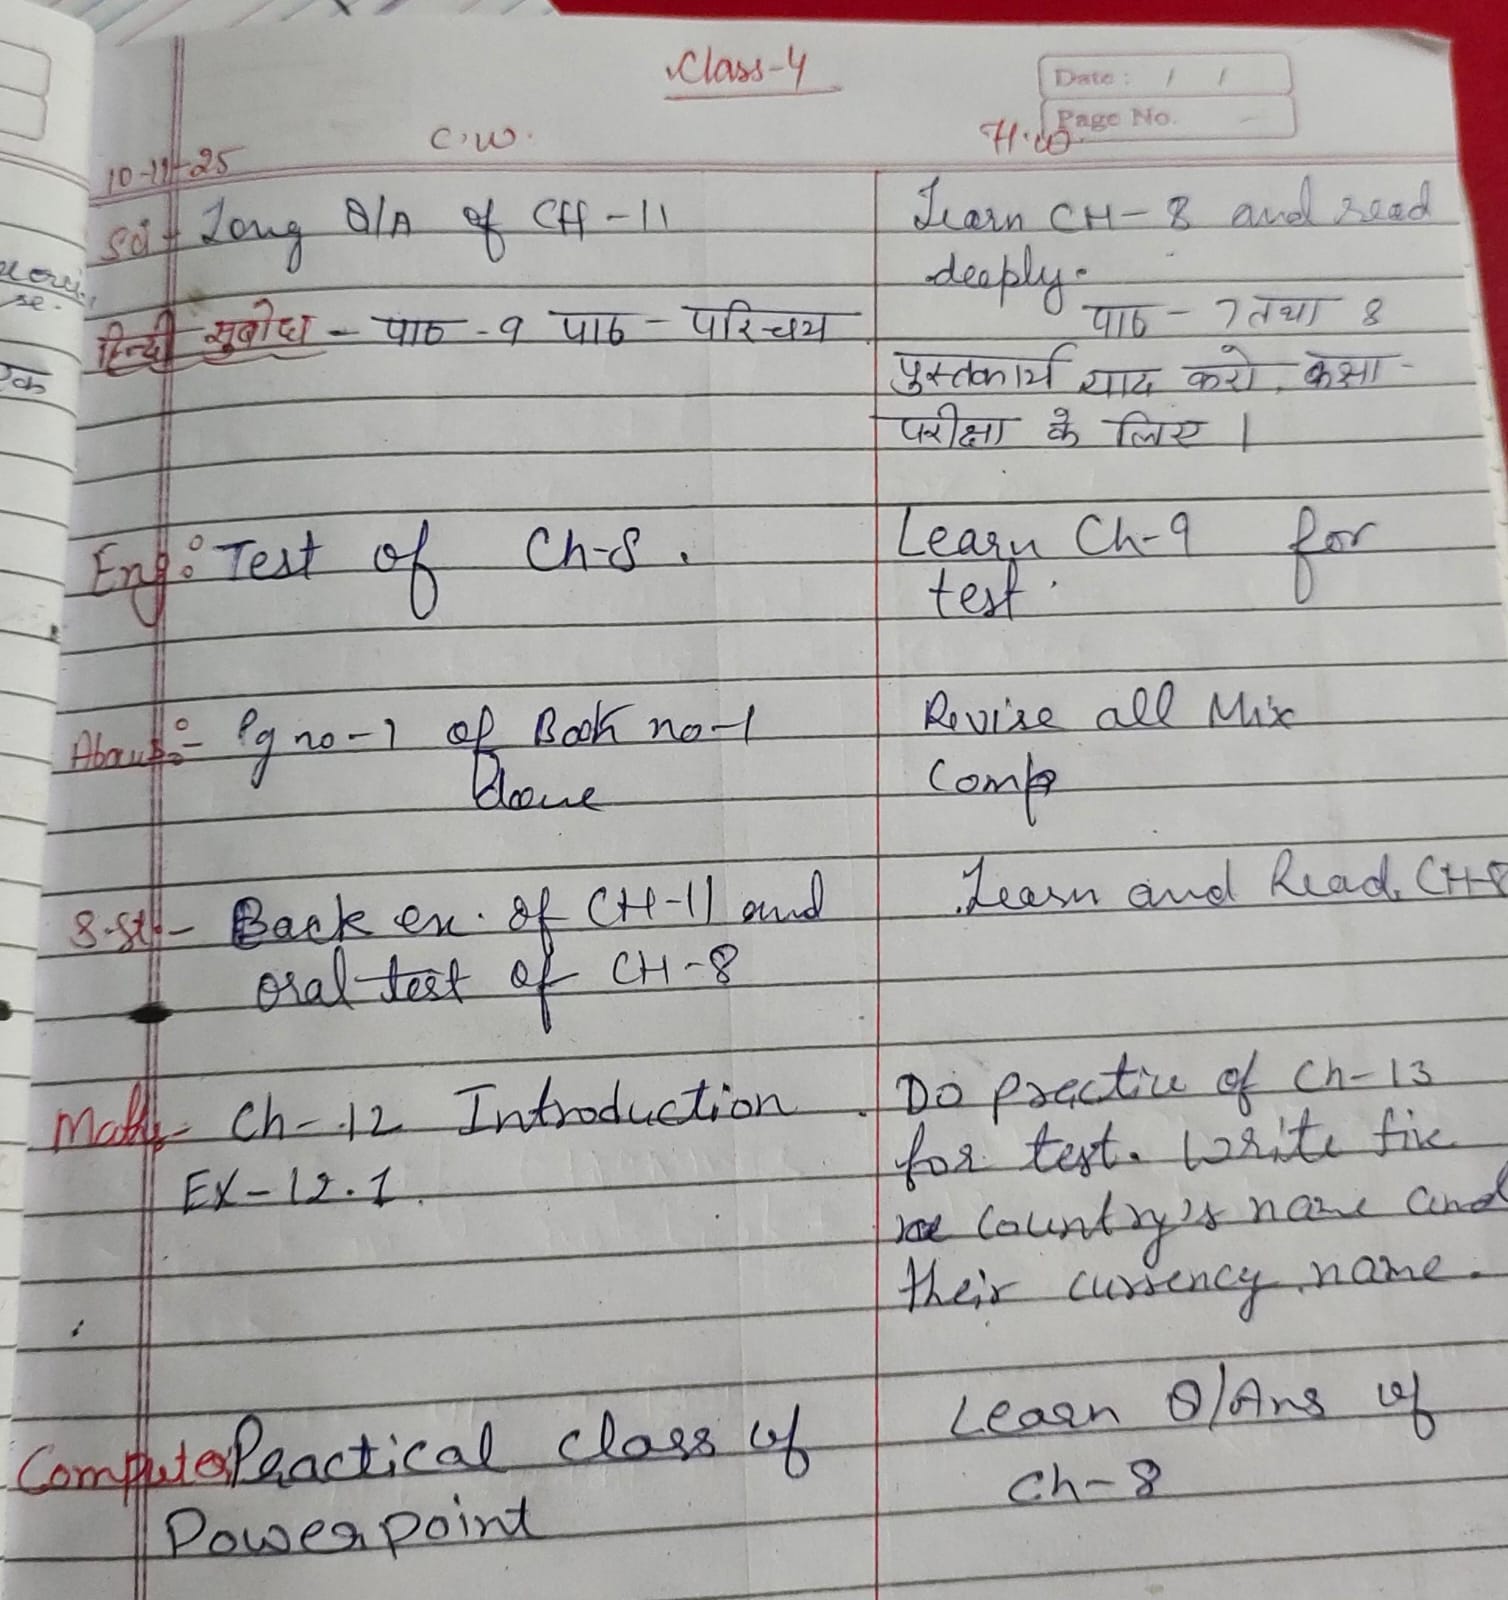 Class-4
Date : / /
Page No.
C.W.
H.W.
10-11-25
Sci - Long Q/A of CH - 11
Learn CH - 8 and read
deeply.
हिन्दी सुबोध - पाठ - 9 पाठ - परिचय
पाठ - 7 तथा 8
पुस्तकार्य याद करो, कक्षा -
परीक्षा के लिए ।
Eng: Test of Ch-8.
Learn Ch-9 for
test.
Abacus:- Pg no-7 of Book no-1
done
Revise all Mix
Comp
S.St - Back ex. of CH-11 and
oral test of CH-8
Learn and Read CH-8
Maths - Ch-12 Introduction
EX-12.1.
Do practice of Ch-13
for test. Write five
country's name and
their currency name.
Computer Practical class of
Powerpoint
Learn Q/Ans of
Ch-8